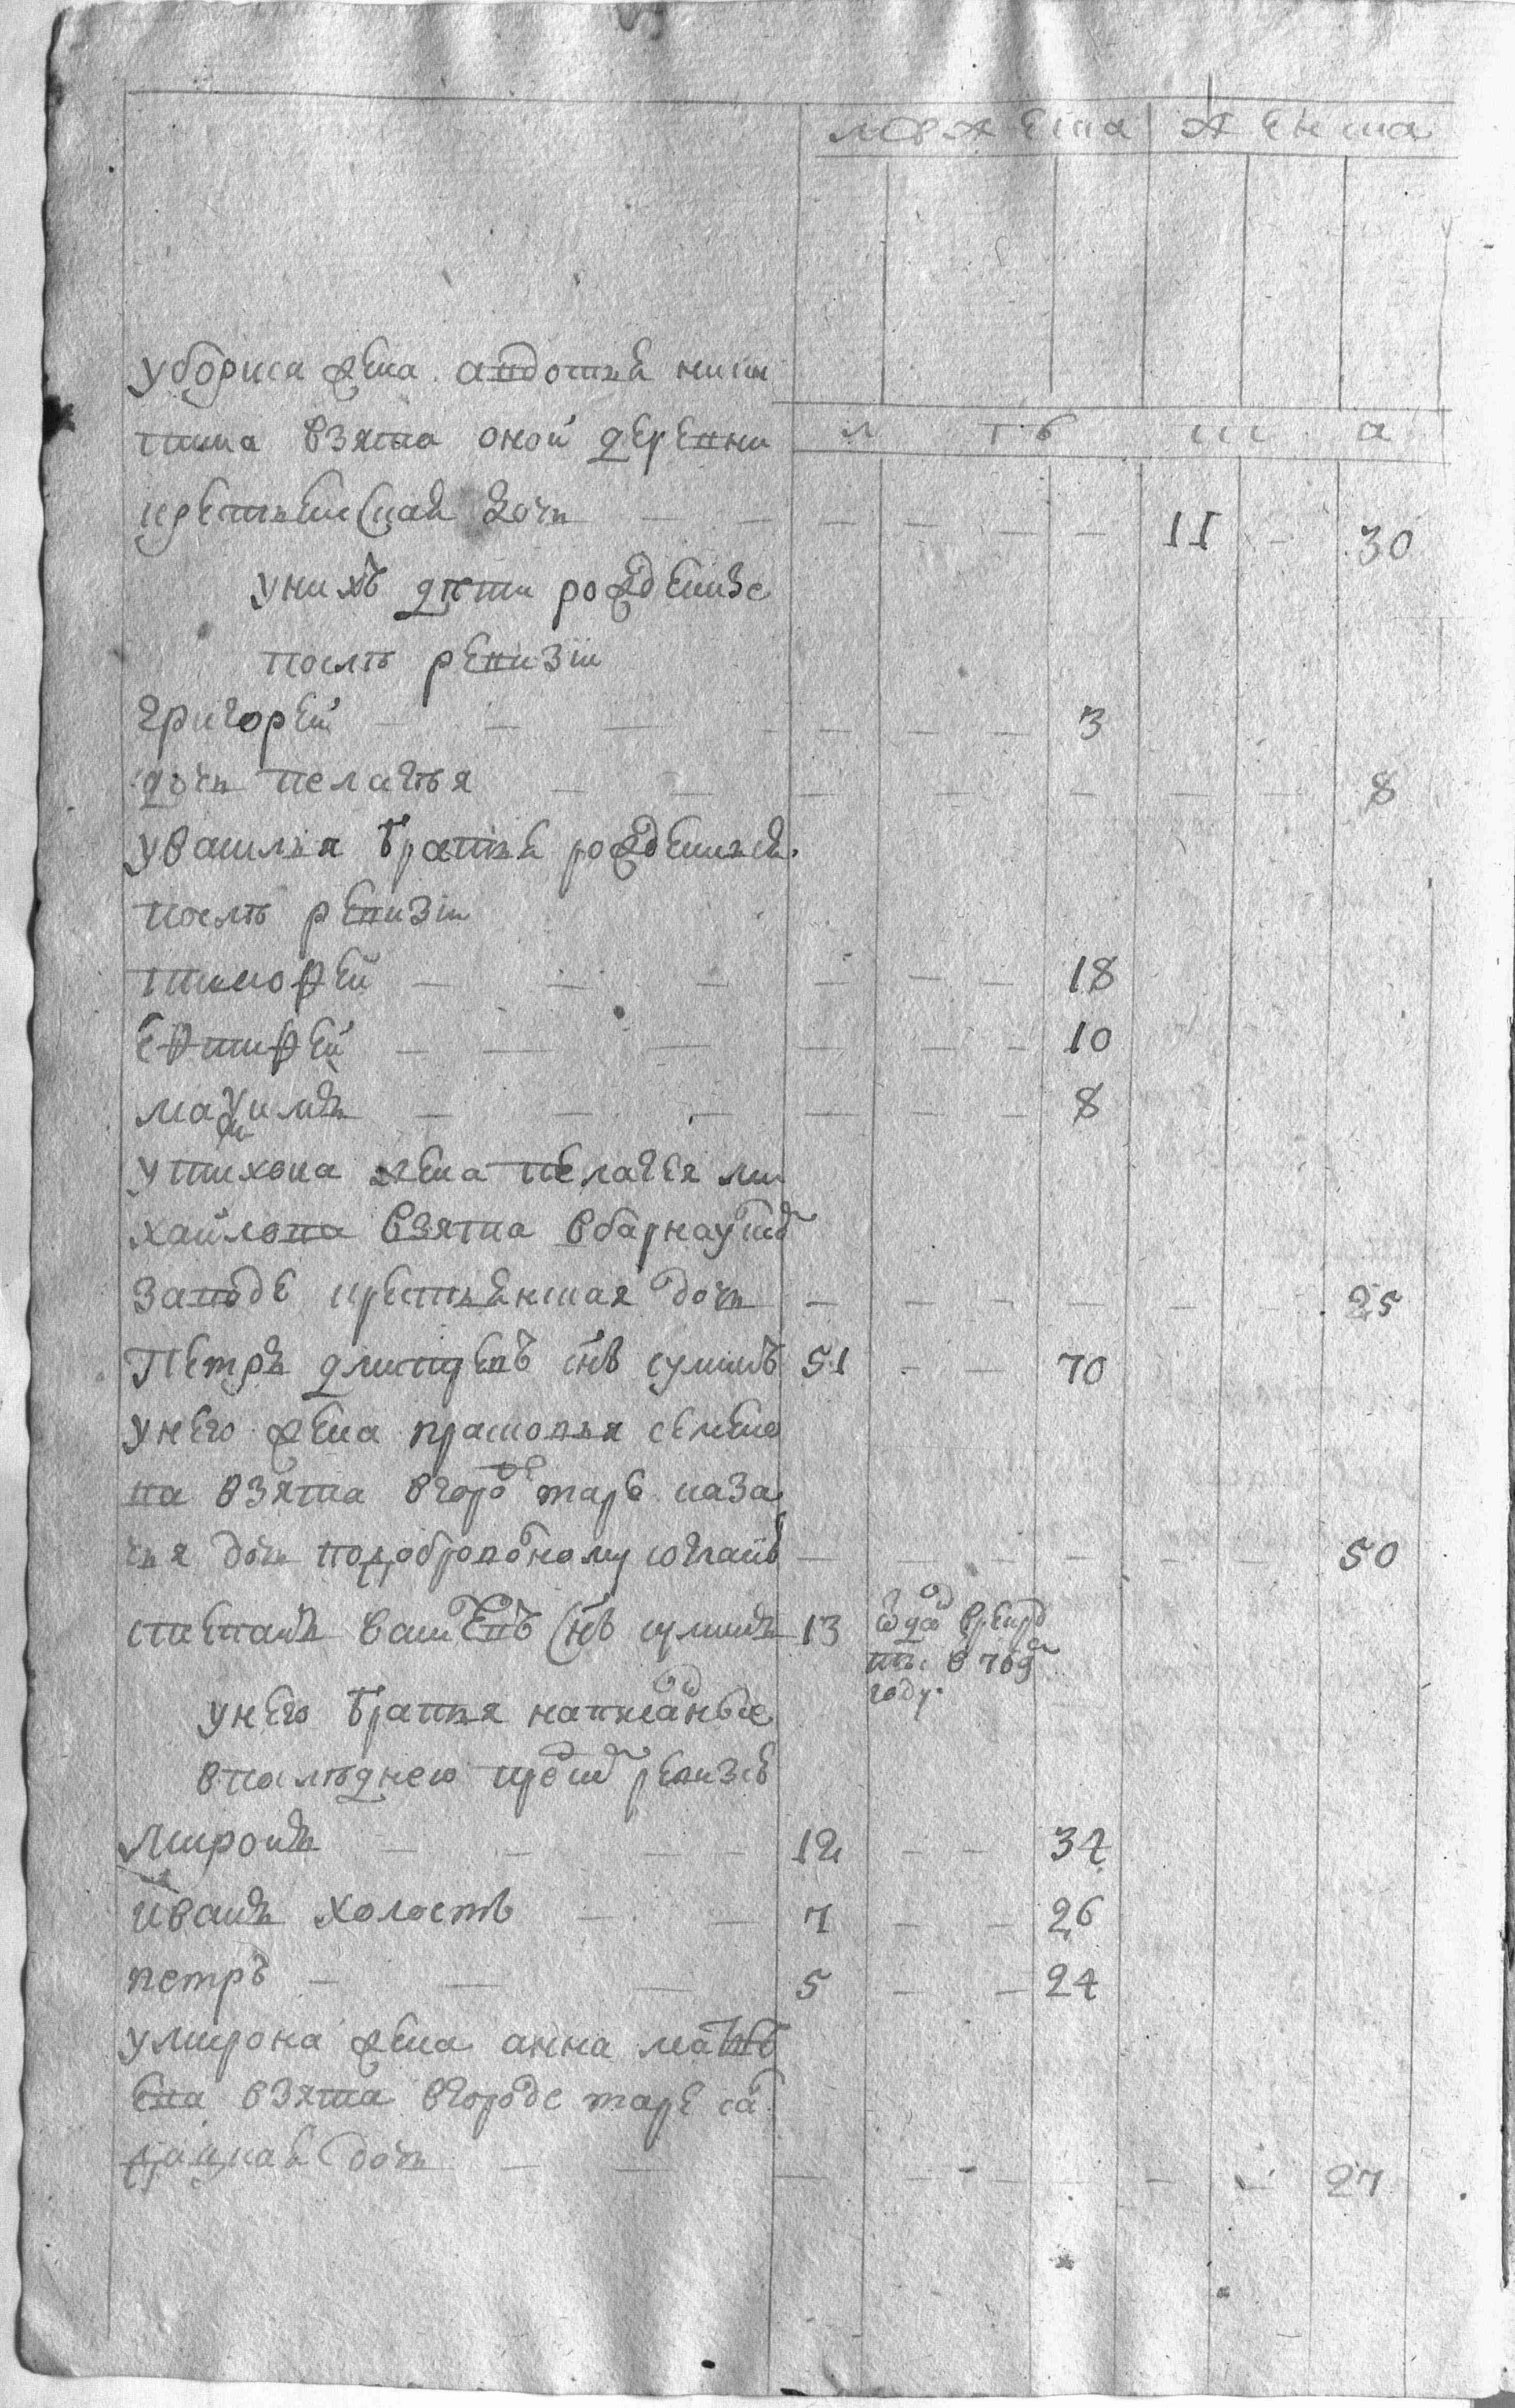 мужеска женска
у бориса жена авдотья ники
тина взята оной деревни
л тъ а
крестьянская дочь — — — — — — 11 — 30
у нихъ дети рожденные
после ревизіи
григорей — — — — — — 3
дочь пелагѣя — — — — — — — 8
у василья братья рожденныя
послѣ ревизіи
тимофей — — — — — — 18
евтифей — — — — — — 10
маѯимъ — — — — — — 8
у тихона жена пелагея ми
хайлова взята в барнаул
заводе крестьянская дочь — — — — — — 25
Петръ снъ 51 — — 70
у него жена прасковья семено
ва взята в городе таре каза
чья дочь по добровольному согласию — — — — — — 50
степанъ снъ 13 отдан в рекру
ты в 769
году
у него братья написанные
в последнею пред ревизие
Миронъ — — — — 12 — — 34
иванъ холостъ — — 7 — — 26
петръ — — — 5 — — 24
у мирона жена анна матве
ева взята в городе таре сал
дацкая дочь — — — — — — — 27